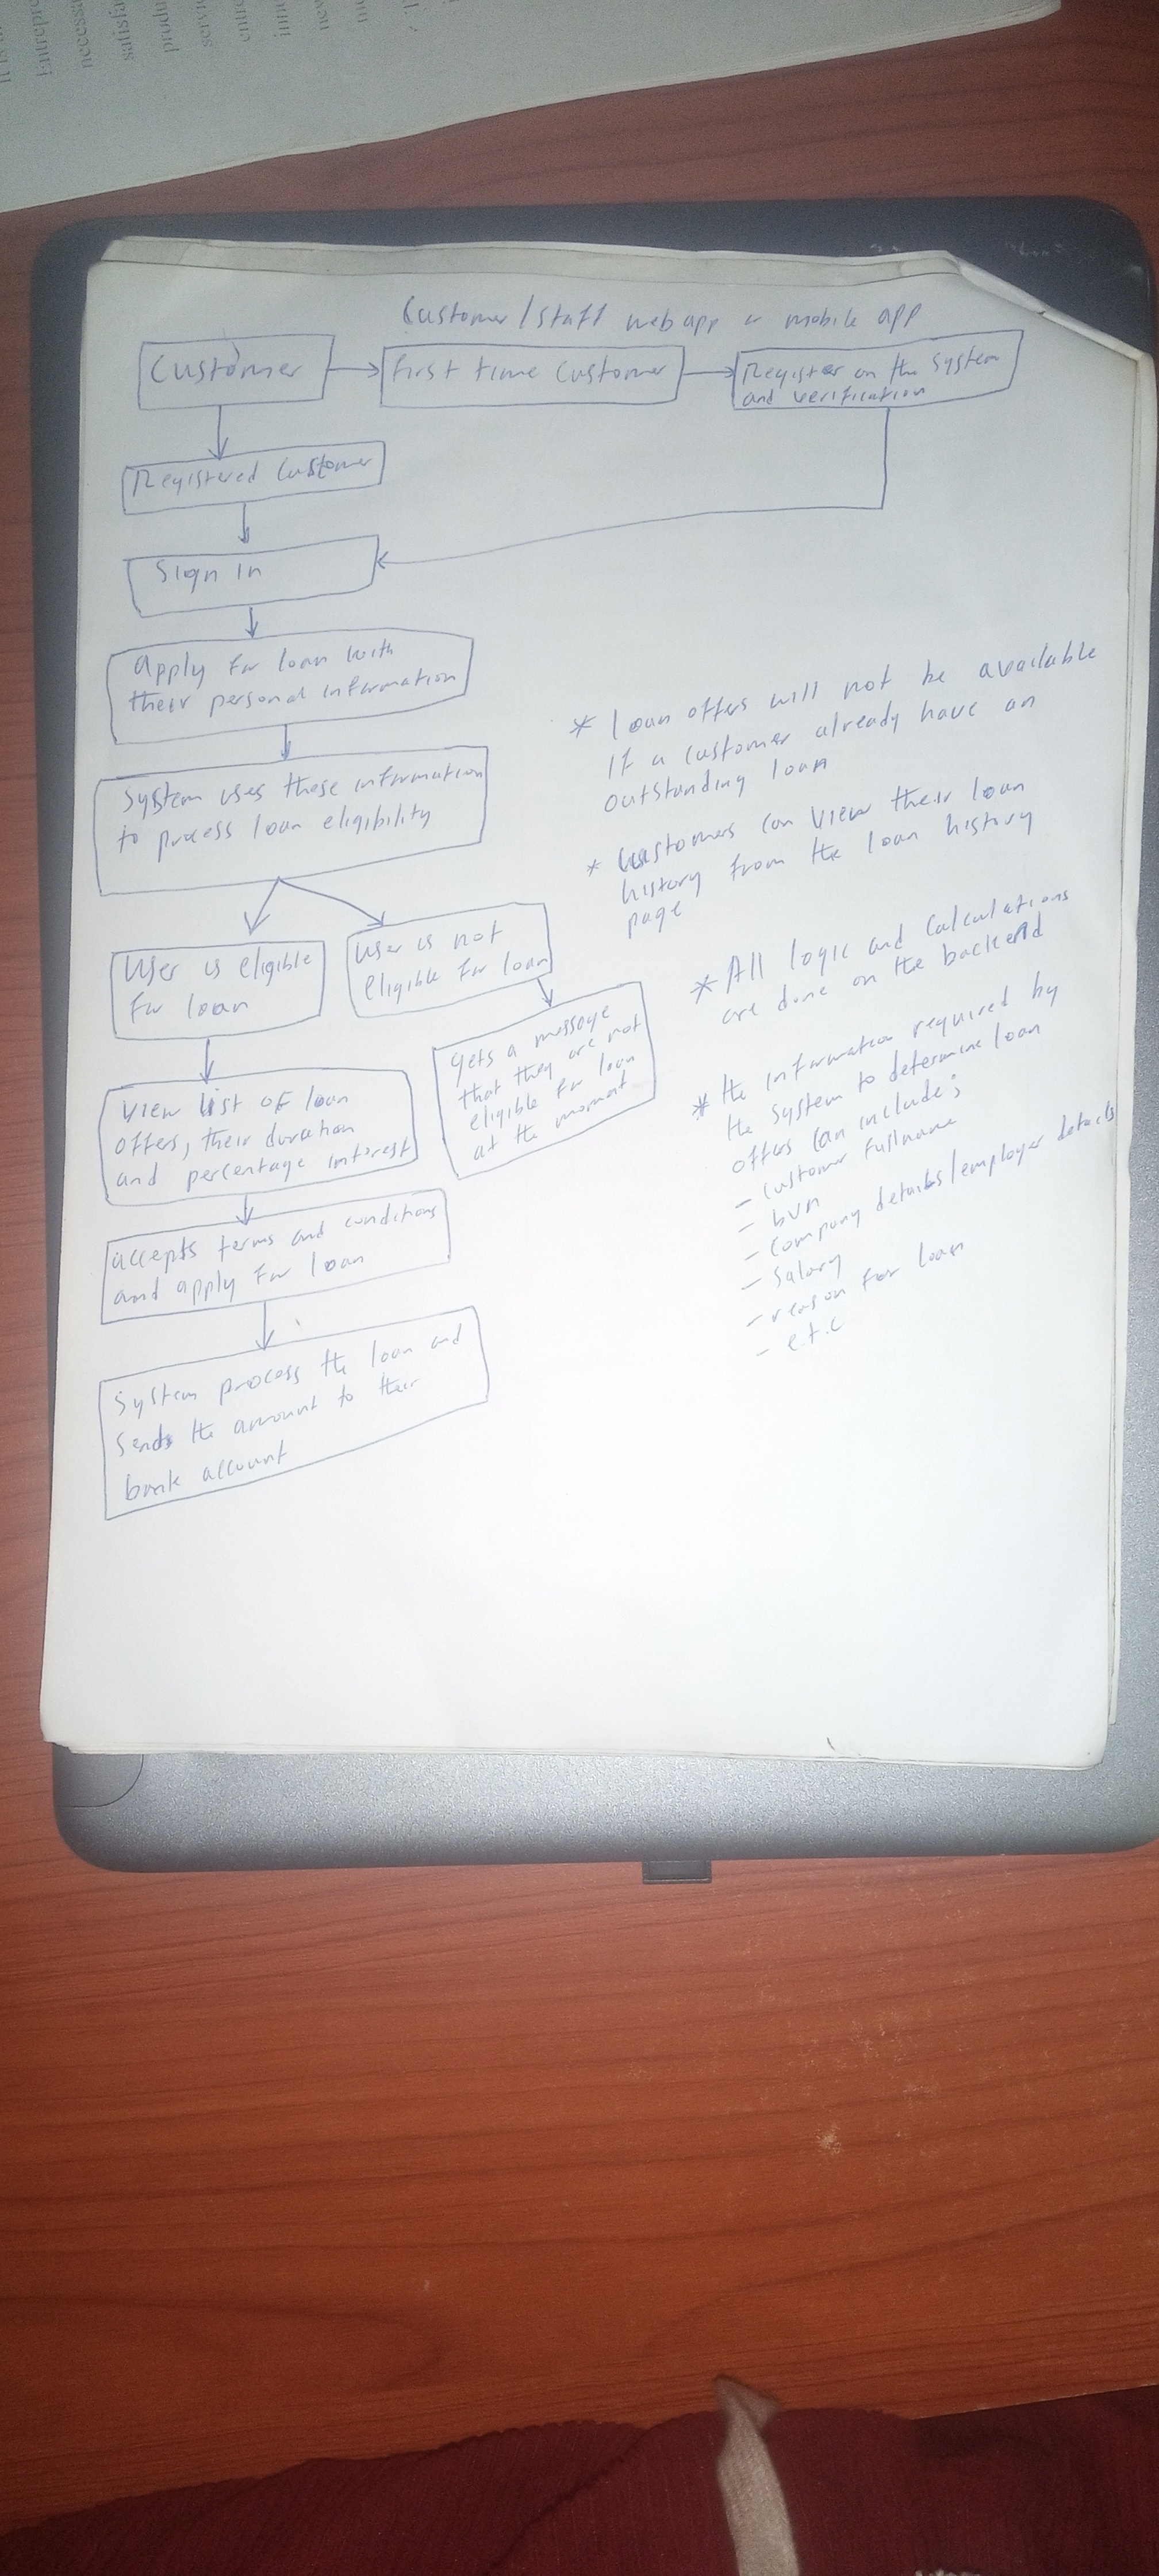 Customer/staff web app or mobile app
Customer
First time Customer
Register on the System
and verification
Registered Customer
Sign In
Apply for loan with
their personal information
System uses these information
to process loan eligibility
User is eligible
for loan
User is not
eligible for loan
gets a message
that they are not
eligible for loan
at the moment
View list of loan
offers, their duration
and percentage interest
accepts terms and conditions
and apply for loan
System process the loan and
sends the amount to their
bank account
* Loan offers will not be available
If a customer already have an
outstanding loan
* Customers can view their loan
history from the loan history
page
* All logic and Calculations
are done on the backend
* the information required by
the system to determine loan
offers can include;
- Customer Fullname
- bvn
- Company details/employer details
- Salary
- reason for loan
- e.t.c
Entrepre
necessa
satisfa
produ
servi
entre
inno
new